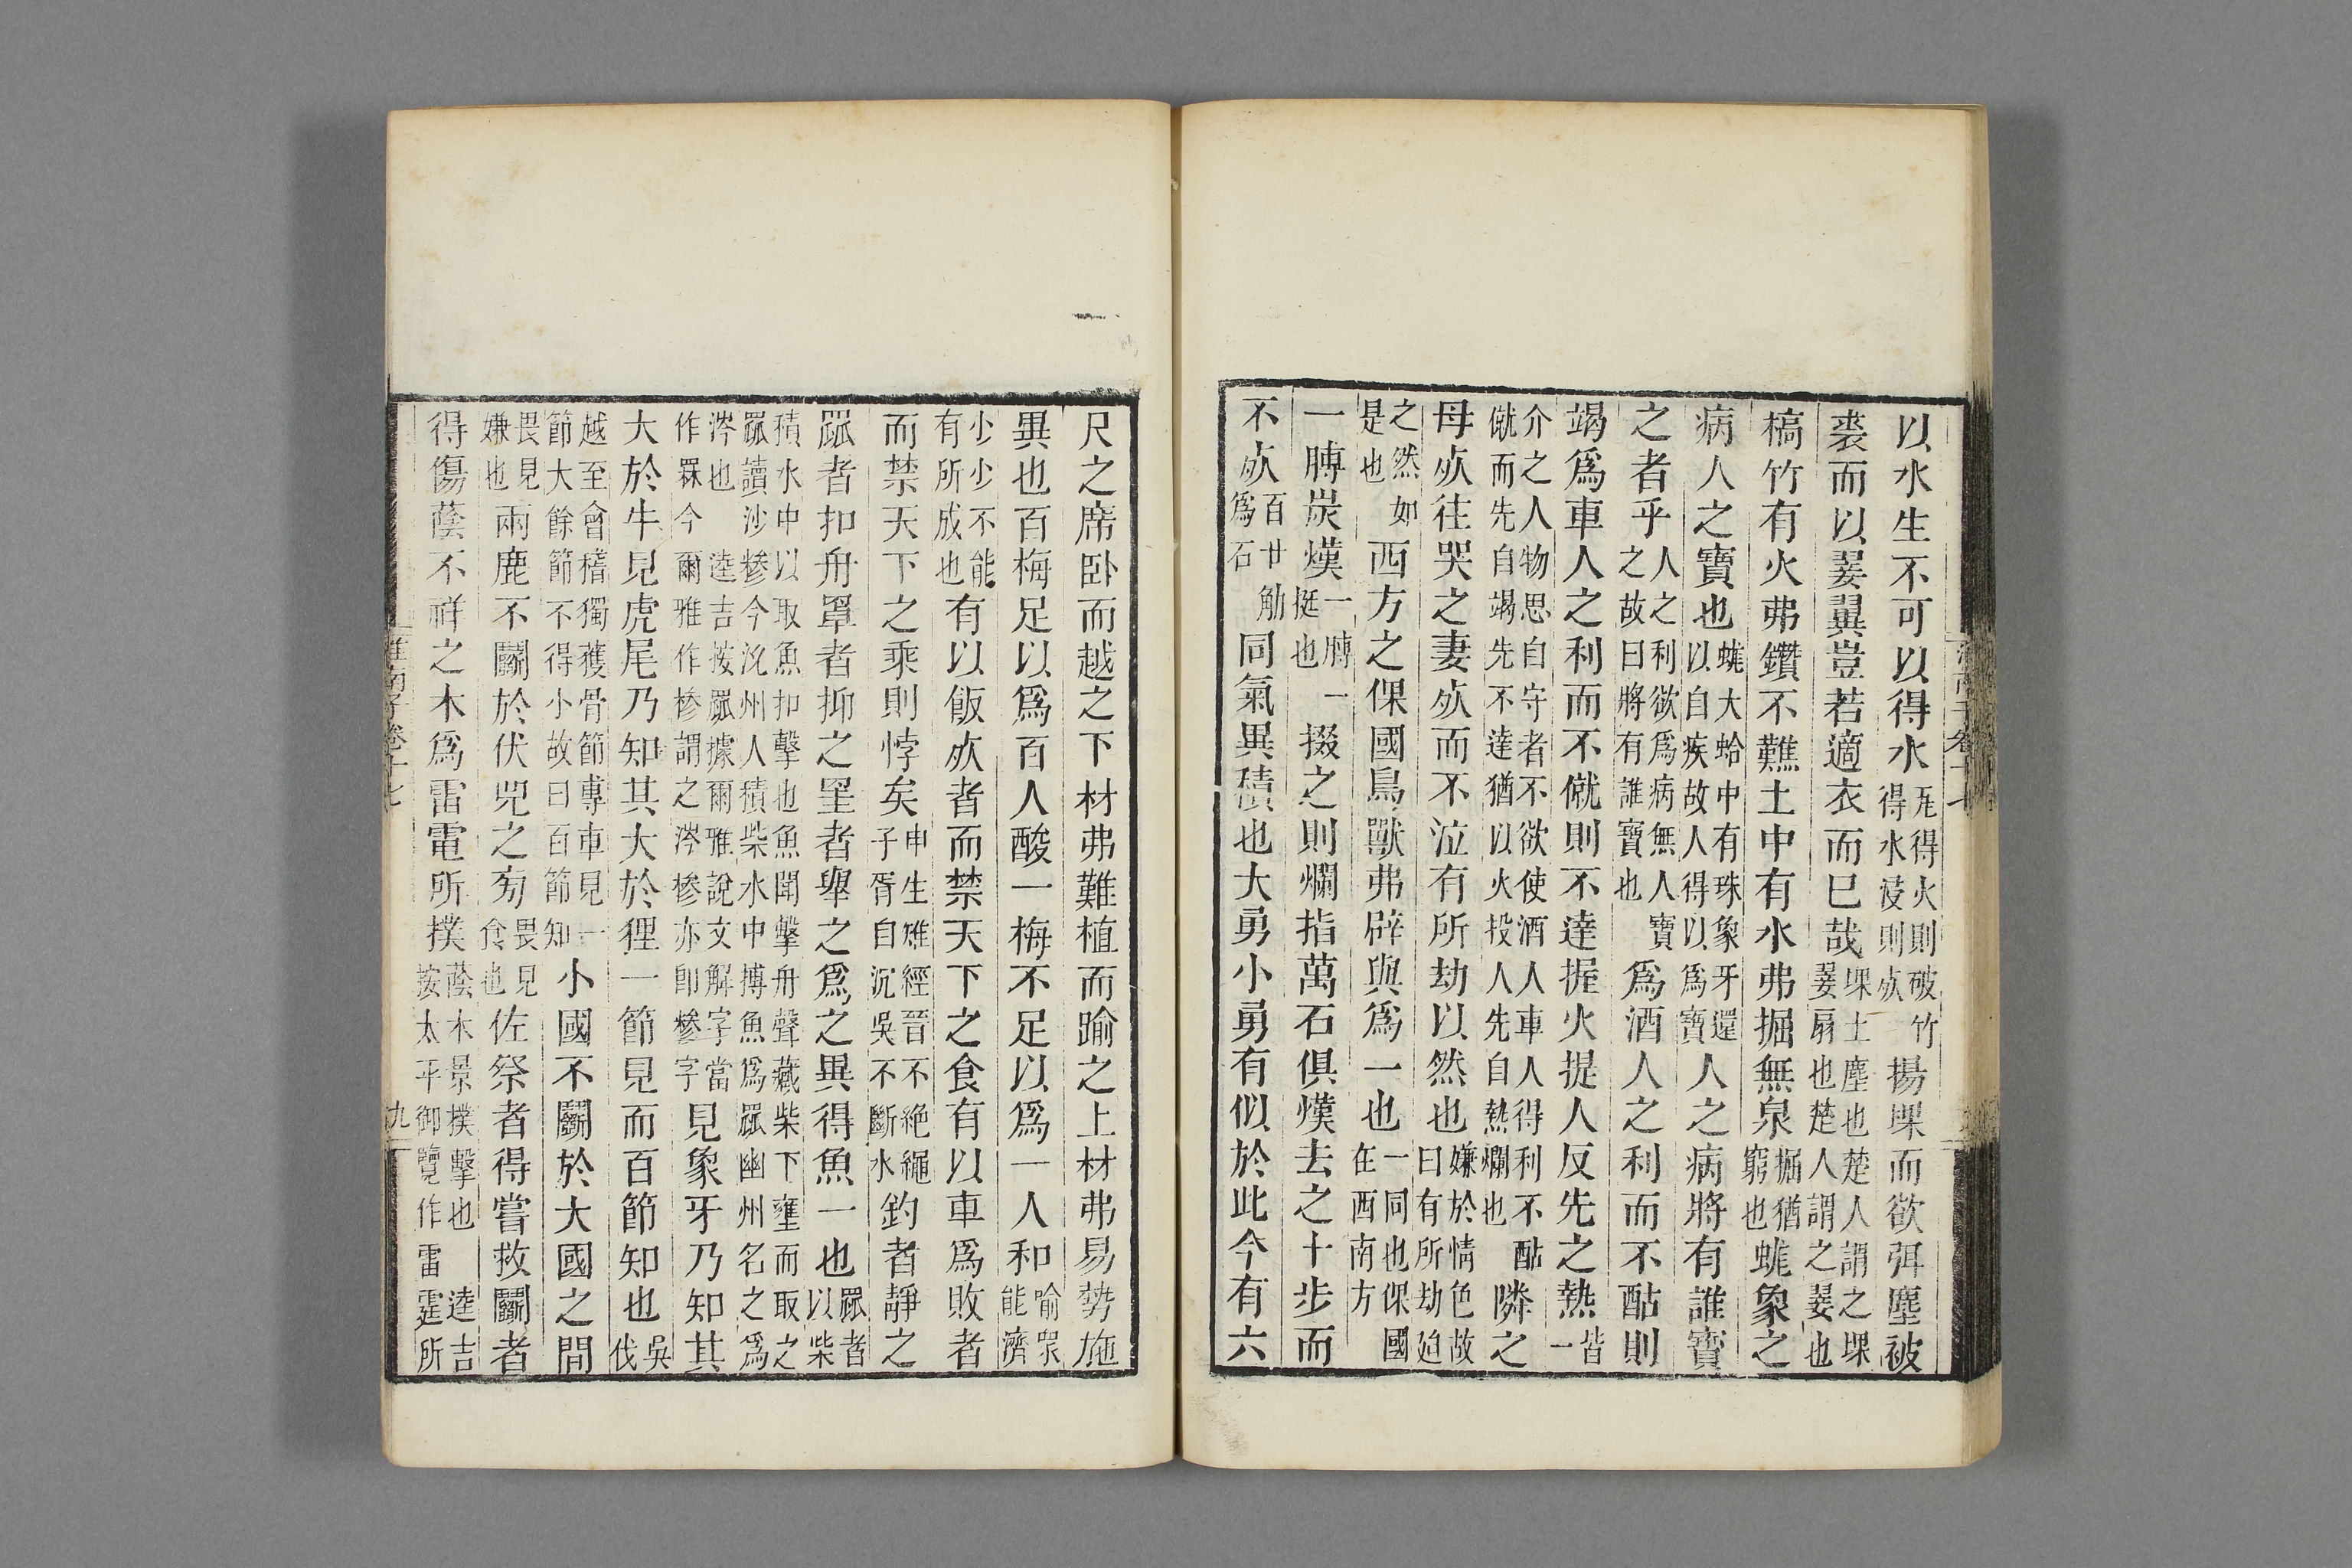 以水生不可以得水瓦得火則破竹得水浸則死揚堁而欲弭塵被
裘而以翣翼豈若適衣而已哉堁土塵也楚人謂之堁翣扇也楚人謂之翣也
槁竹有火弗鑽不難土中有水弗掘無泉掘猶窮也蛖象之
病人之寶也蛖大蛤中有珠象牙還以自疾故人得以爲寶人之病將有誰寶
之者乎人之利欲爲病無人寶之故曰將有誰寶也爲酒人之利而不酤則
竭爲車人之利而不僦則不達握火提人反先之熱皆一
介之人物思自守者不欲使酒人車人得利不酤僦而先自竭先不達猶以火投人先自熱爛也隣之
母死往哭之妻死而不泣有所劫以然也嫌於情色故曰有所劫迫
之然如是也西方之倮國鳥獸弗辟與爲一也一同也倮國在西南方
一膊炭熯一膊一挺也掇之則爛指萬石俱熯去之十步而
不死百廿觔爲石同氣異積也大勇小勇有似於此今有六
尺之席卧而越之下材弗難植而踰之上材弗易勢施
異也百梅足以爲百人酸一梅不足以爲一人和喻眾能濟
少少不能有所成也有以飯死者而禁天下之食有以車爲敗者
而禁天下之乘則悖矣申生雉經晉不絕繩子胥自沉吳不斷水釣者靜之
罧者扣舟罩者抑之罣者舉之爲之異得魚一也罧者以柴
積水中以取魚扣擊也魚聞擊舟聲藏柴下壅而取之罧讀沙糝今沇州人積柴水中搏魚爲罧幽州名之爲
涔也 逵吉按罧據爾雅說文解字當作罧今爾雅作槮謂之涔槮亦即糝字見象牙乃知其
大於牛見虎尾乃知其大於狸一節見而百節知也吳伐
越至會稽獨獲骨節專車見一節大餘節不得小故曰百節知小國不鬭於大國之間
畏見嫌也兩鹿不鬭於伏兕之旁畏見食也佐祭者得嘗救鬭者
得傷蔭不祥之木爲雷電所撲蔭木景撲擊也 逵吉按太平御覽作雷霆所
淮南子卷十七
九